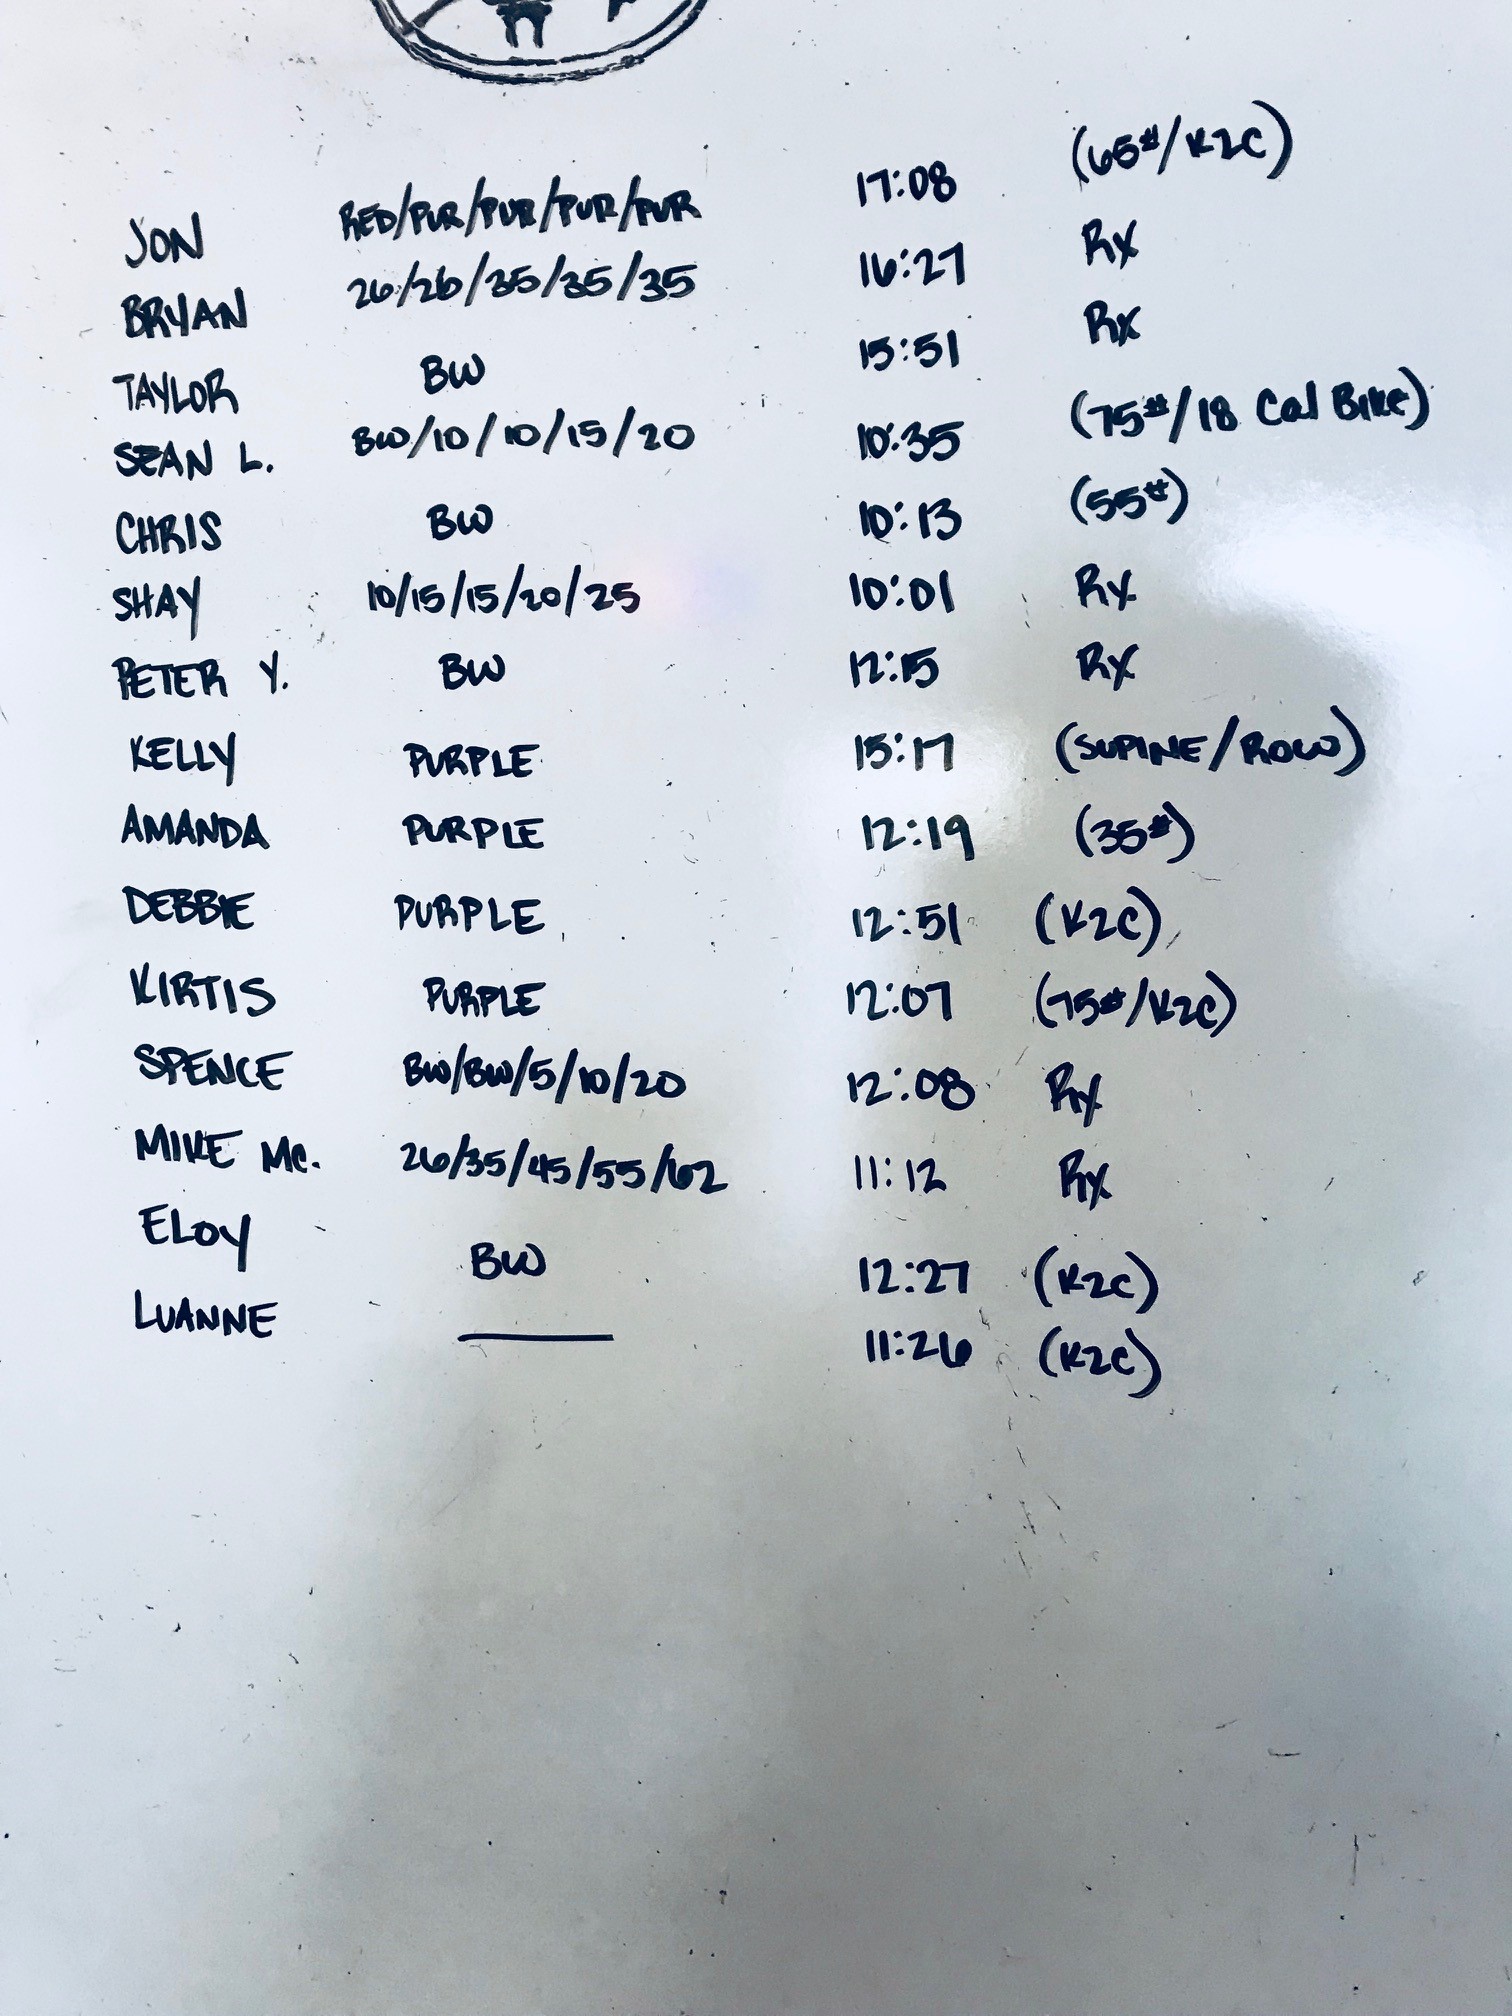 JON RED/PUR/PUR/PUR/PUR 17:08 (65#/K2C)
BRYAN 26/26/35/35/35 16:27 Rx
TAYLOR BW 15:51 Rx
SEAN L. BW/10/10/15/20 10:35 (75#/18 Cal Bike)
CHRIS BW 10:13 (55#)
SHAY 10/15/15/20/25 10:01 Rx
PETER Y. BW 12:15 Rx
KELLY PURPLE 15:17 (SUPINE/ROW)
AMANDA PURPLE 12:19 (35#)
DEBBIE PURPLE 12:51 (K2C)
KIRTIS PURPLE 12:07 (75#/K2C)
SPENCE BW/BW/5/10/20 12:08 Rx
MIKE MC. 26/35/45/55/62 11:12 Rx
ELOY BW 12:27 (K2C)
LUANNE — 11:26 (K2C)